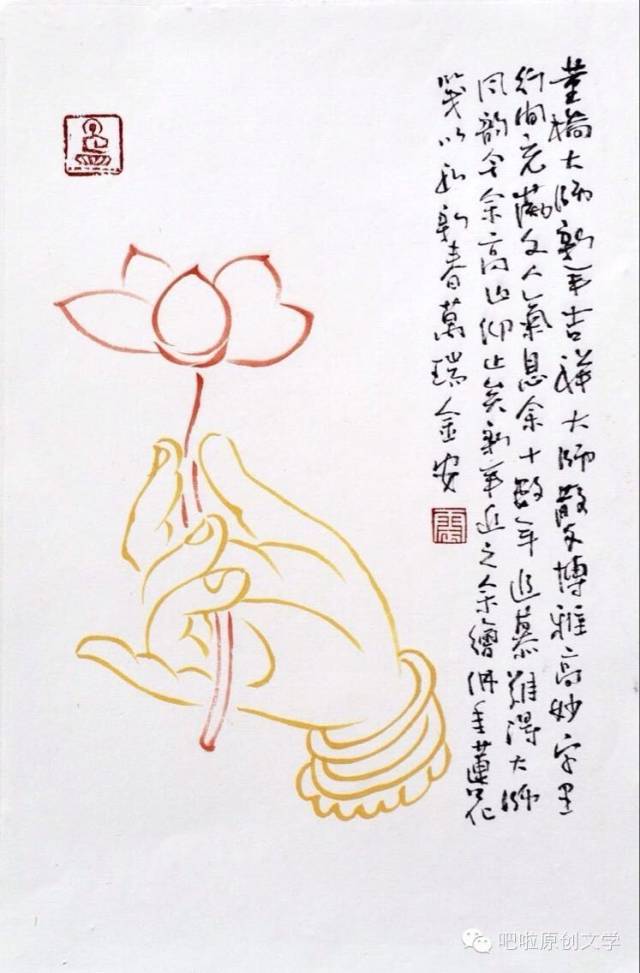 董桥大师新年吉祥大师散文博雅高妙字里
行间充满文人气息余十数年追慕难得大师
风韵令余高山仰止矣新年近之余绘佛手莲花
笺以祝新春万瑞金安
吧啦原创文学